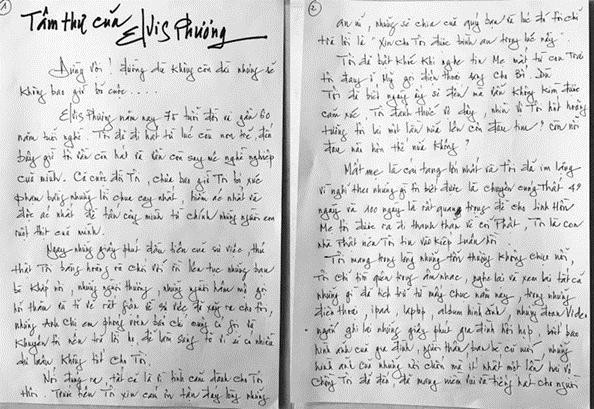 1
Tâm thư của
Elvis Phương
Đừng vội! đường dù không còn dài nhưng sẽ
không bao giờ bỏ cuộc....
Elvis Phương năm nay 75 tuổi đời và gần 60
năm tuổi nghề. Tôi đã đi hát từ lúc còn trẻ, đến
bây giờ tôi vẫn còn hát và vẫn còn say mê nghề nghiệp
của mình. Cả cuộc đời Tôi, chưa bao giờ Tôi bị xúc
phạm bằng những lời chua cay nhất, hiểm ác nhất và
độc ác nhất để tấn công mình từ chính những người em
ruột thịt của mình.
Ngay những giây phút đầu tiên của sự việc, thú
thật Tôi bàng hoàng và chơi vơi vì liên tục những bạn
bè khắp nơi, những người thương, những người hâm mộ gọi
hỏi thăm và tỏ vẻ rất giận về sự việc đã xảy ra cho tôi,
những anh chị em phóng viên báo chí cũng có gọi và
khuyên tôi nên trả lời họ để làm sáng tỏ vì sẽ có nhiều
dư luận không tốt cho Tôi.
Nói đúng ra, tất cả là vì tình cảm dành cho Tôi
thôi. Trước tiên Tôi xin cám ơn tận đáy lòng những
2
ân ủi, những sẻ chia của quý bạn và lúc đó tôi chỉ
trả lời là "Xin cho Tôi được bình an trong lúc này".
Tôi đã bật khóc khi nghe tin Mẹ mất từ con Trai
tôi đang ở Mỹ gọi điện thoại sang cho Bố. Dù
Tôi đã biết ngày ấy sẽ đến mà vẫn không kìm được
cảm xúc. Tôi đánh thức vợ dậy, nhà tôi hốt hoảng
tưởng tôi lại một lần nữa lên cơn đau tim? còn nỗi
đau nào hơn thế nữa không?
Mất mẹ là cơn tang lớn nhất và Tôi đã im lặng
vì nghĩ theo những gì tôi biết được là chuyện cúng Thất 49
ngày và 100 ngày là rất quan trọng để cho linh hồn
Mẹ tôi được ra đi thanh thản về cõi Phật, Tôi là con
nhà Phật nên Tôi tin vào kiếp luân hồi
Tôi mang trong lòng những tổn thương không chịu nổi,
Tôi chỉ tìm quên trong âm nhạc, nghe lại và xem lại tất cả
những gì đã tích trữ từ mấy chục năm nay, trong những
điện thoại, ipad, laptop, album hình ảnh, những đoạn Video
ngắn ghi lại những giây phút gia đình hội họp, biết bao
hình ảnh của gia đình, thân bạn bè cũ mới, những
hình ảnh của những nơi chốn mà ít nhất một lần hai vợ
chồng Tôi đã đến để mang niềm vui và tiếng hát cho người